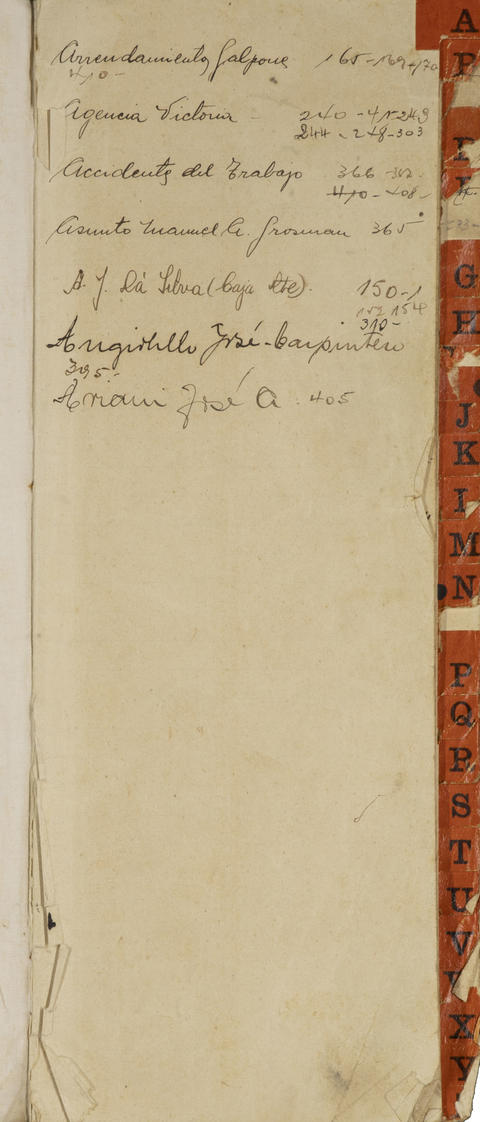 Arrendamientos Galpone 165-169-170
410-
Agencia Victoria - 240-41-249
244-248-303
Accidentes del Trabajo 366-
410-408-
Asunto Manuel A. Grosman 365
A. J. Dá Silva (Caja Ate). 150-1
152 154
310-
Angiolillo José-Carpintero
395-
Ariani José A. 405
A
G
H
J
K
M
N
P
Q
R
S
T
U
V
X
Y